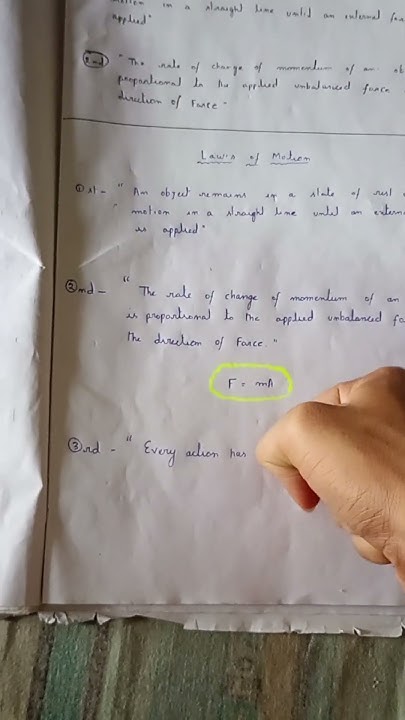 motion in a straight line until an external
applied"
2nd "The rate of change of momentum of an
proportional to the applied unbalanced force
direction of Force"
Law's of Motion
①st - "An object remains in a state of rest
motion in a straight line until an extern
is applied"
②nd - "The rate of change of momentum of an
is proportional to the applied unbalanced fo
the direction of Force."
F = mA
③rd - "Every action has